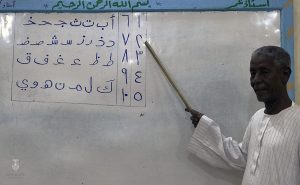 بسم الله الرحمن الرحيم
١ ٦ أ ب ت ث ج ح خ
٢ ٧ د ذ ر ز س ش ص ض
٣ ٨ ط ظ ع غ ف ق
٤ ٩ ك ل م ن ه و ي
٥ ١٠